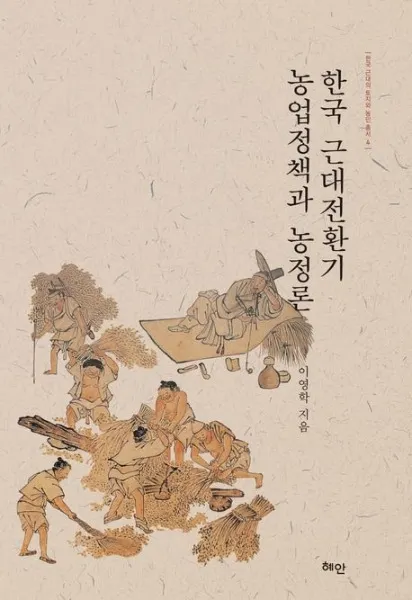 |한국 근대의 토지와 농민 총서 4|
한국 근대전환기
농업정책과 농정론
이영학 지음
혜안